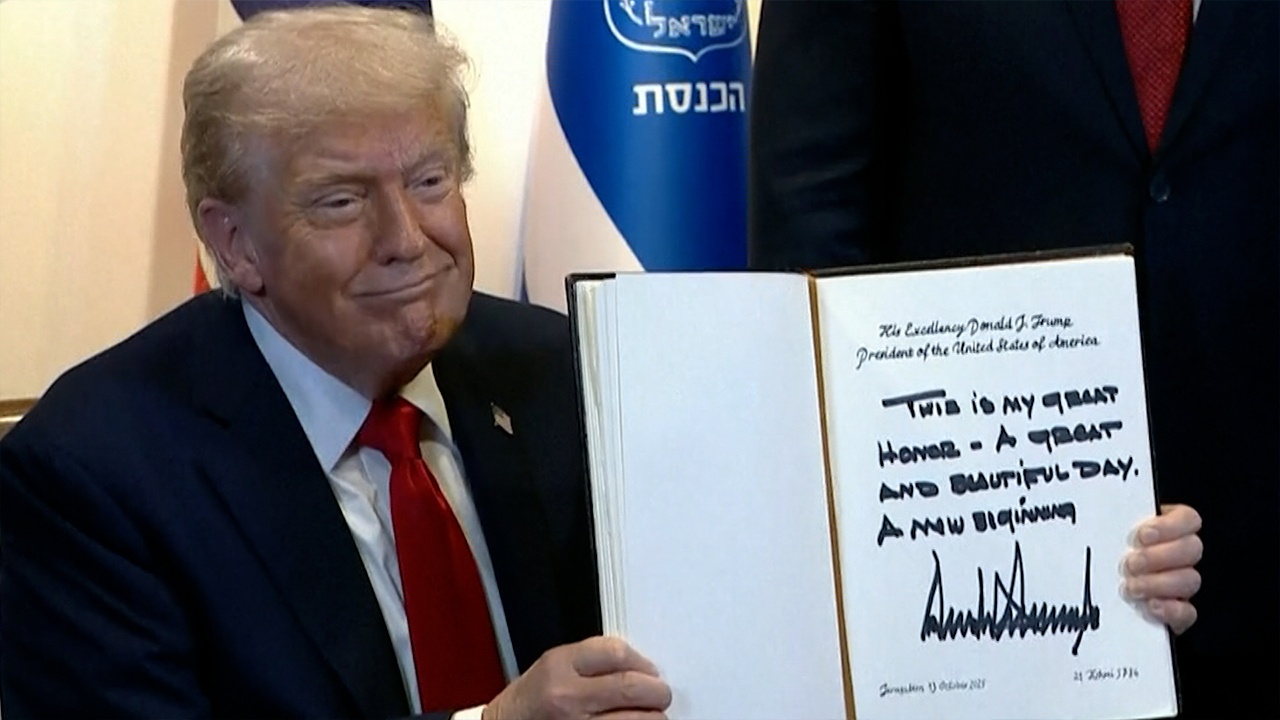 ישראל
הכנסת
His Excellency Donald J. Trump
President of the United States of America
THIS IS MY GREAT
HONOR - A GREAT
AND BEAUTIFUL DAY.
A NEW BIGINNING
Jerusalem 13 October 2025
21 Tishrei 5786